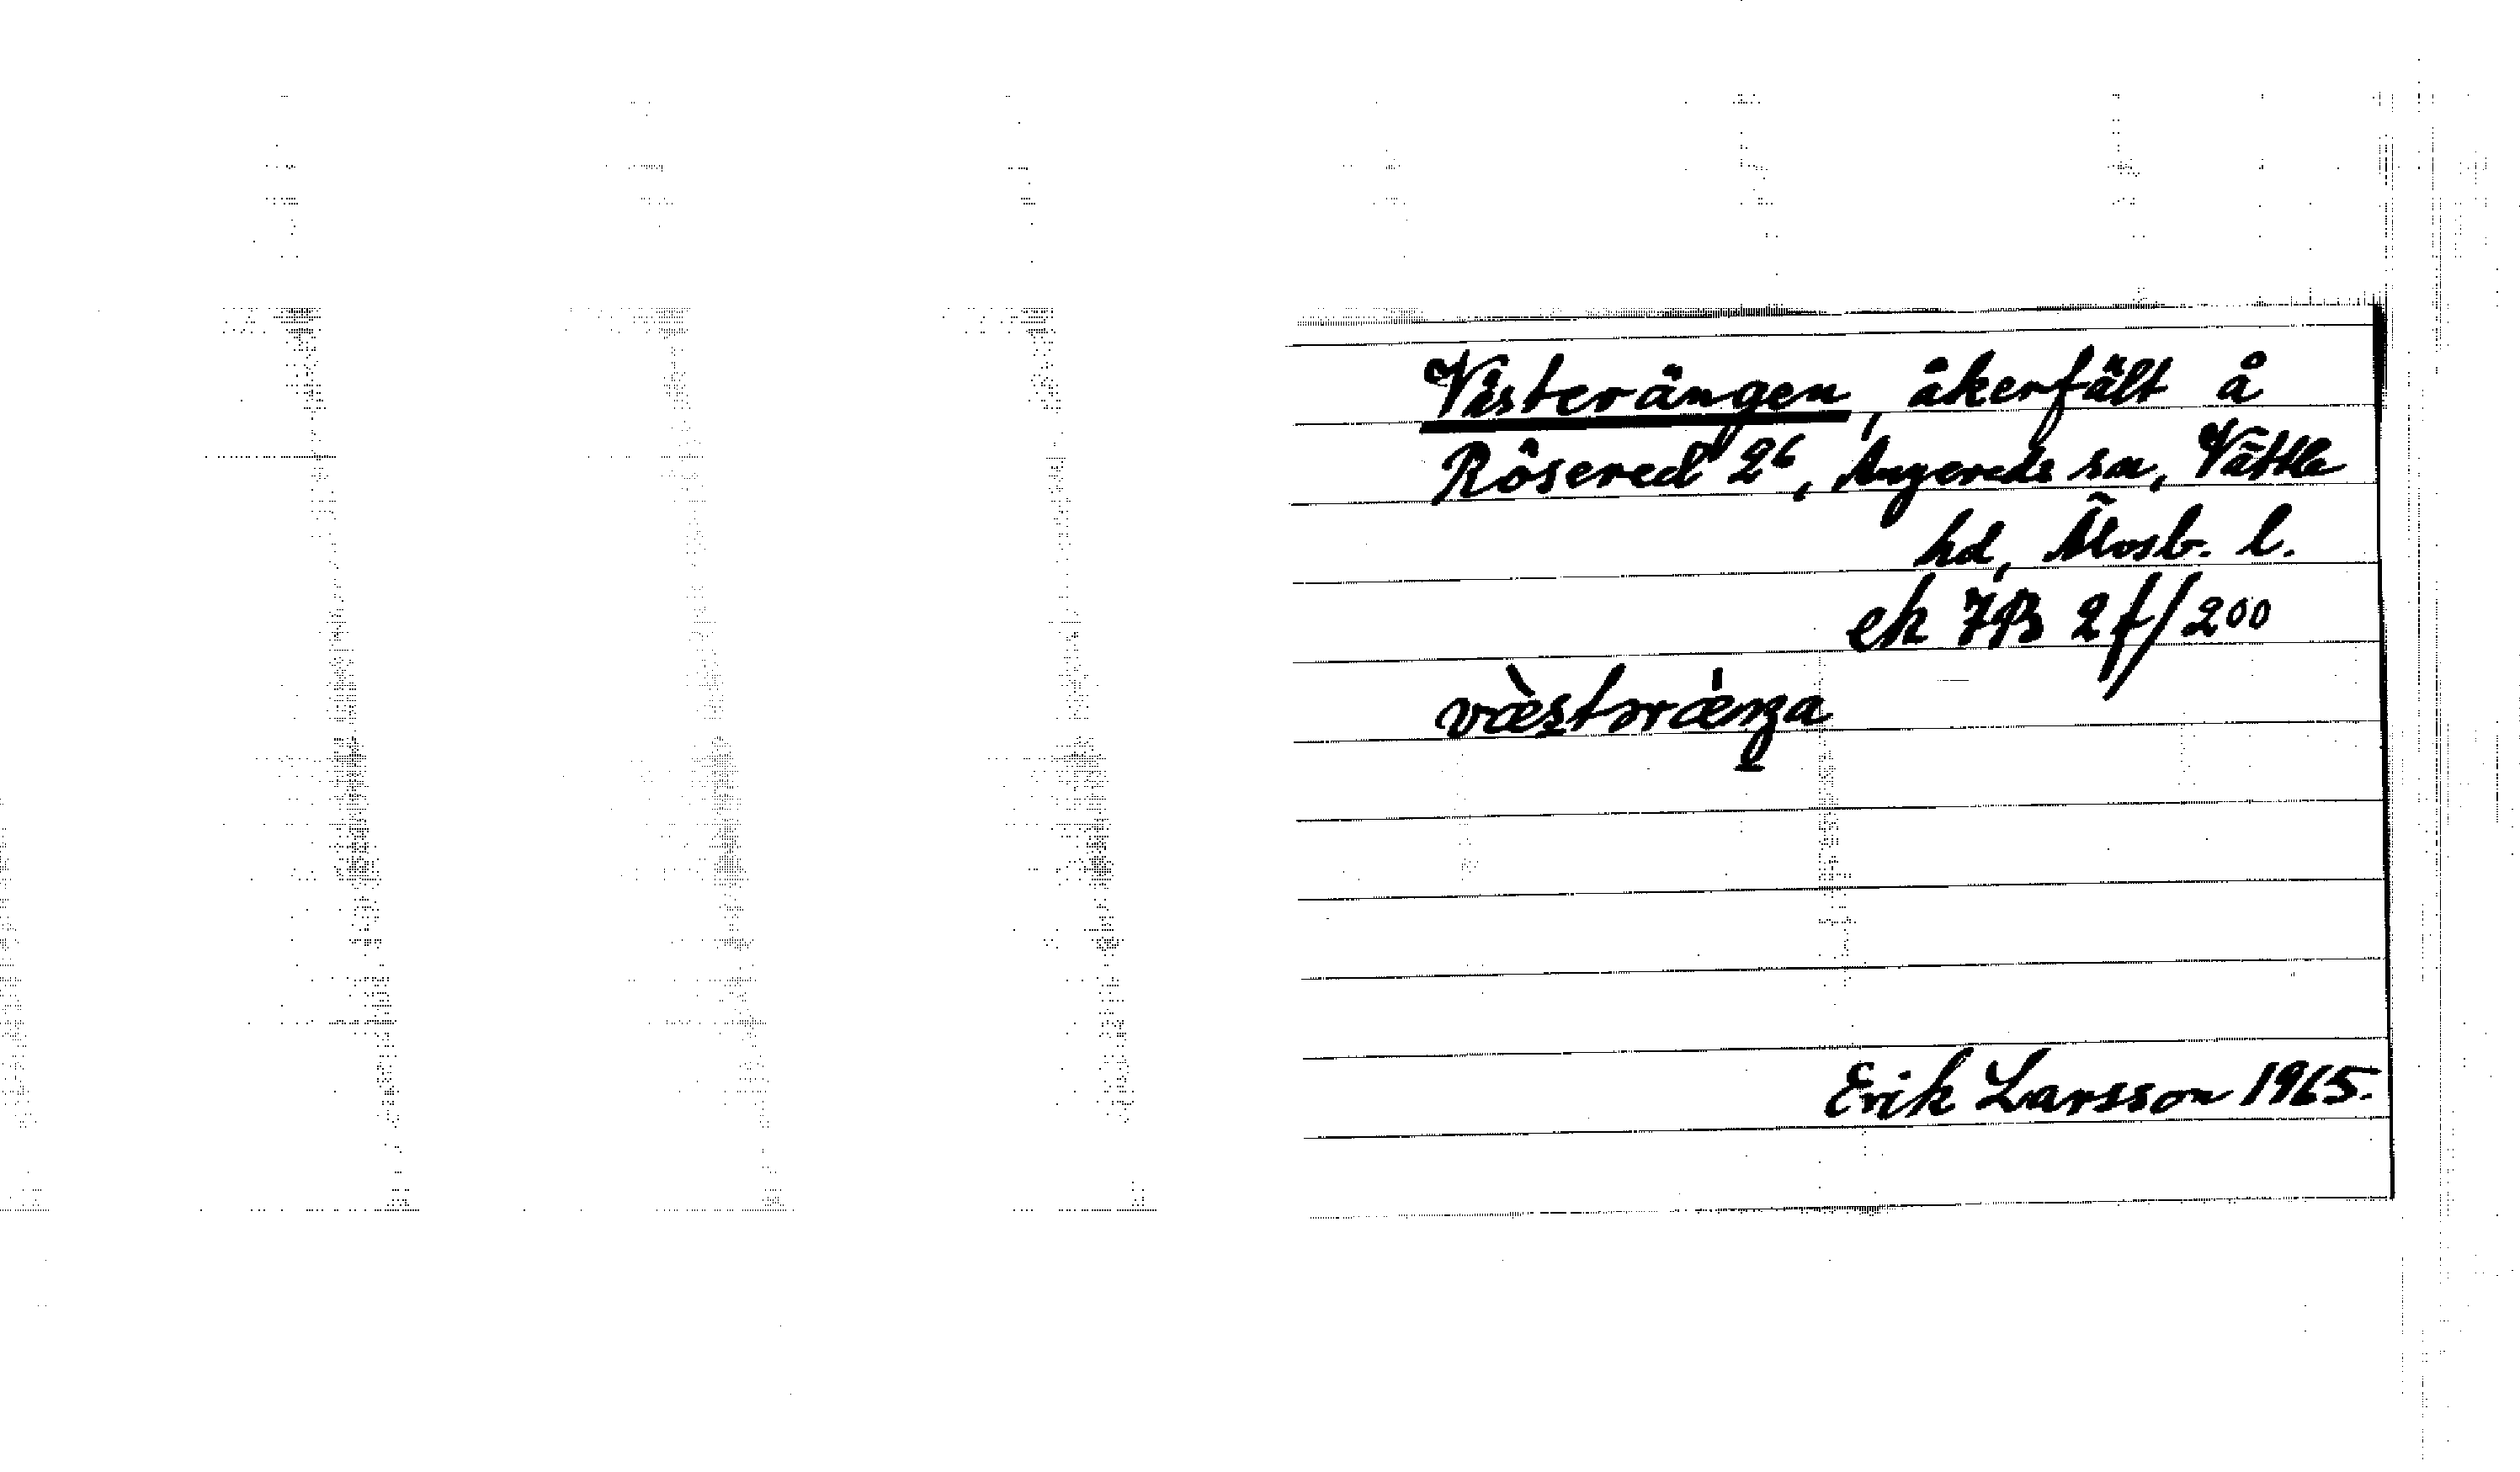 Västerängen, åkerfält å
Rösered 2⁶, Angereds sn, Vättle
hd, Älvsb. l.
ek 7B 2f/200
væ̀stərǽŋa
Erik Larsson 1965.